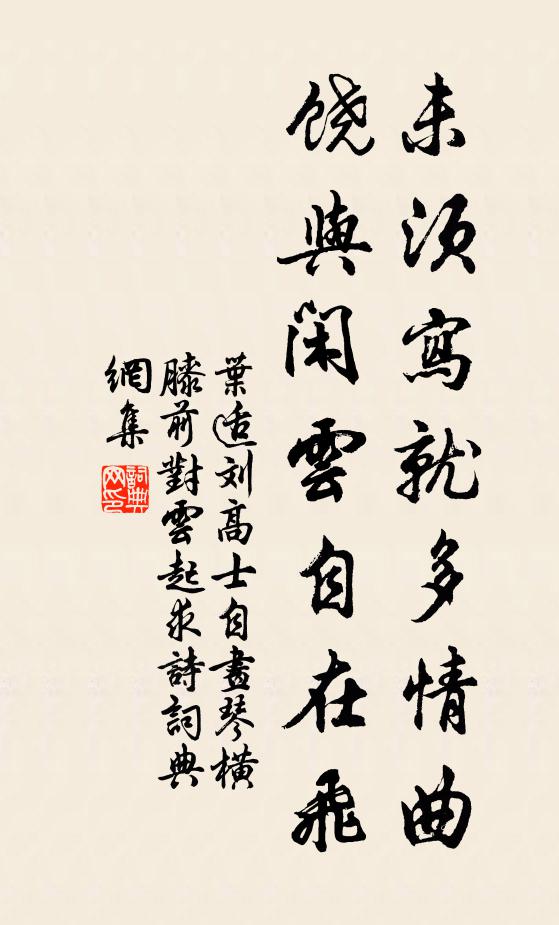 未須寫就多情曲
饒與閑雲自在飛
葉适刘高士自畫琴橫
膝前對雲起求詩詞典
網集
詞典
网印